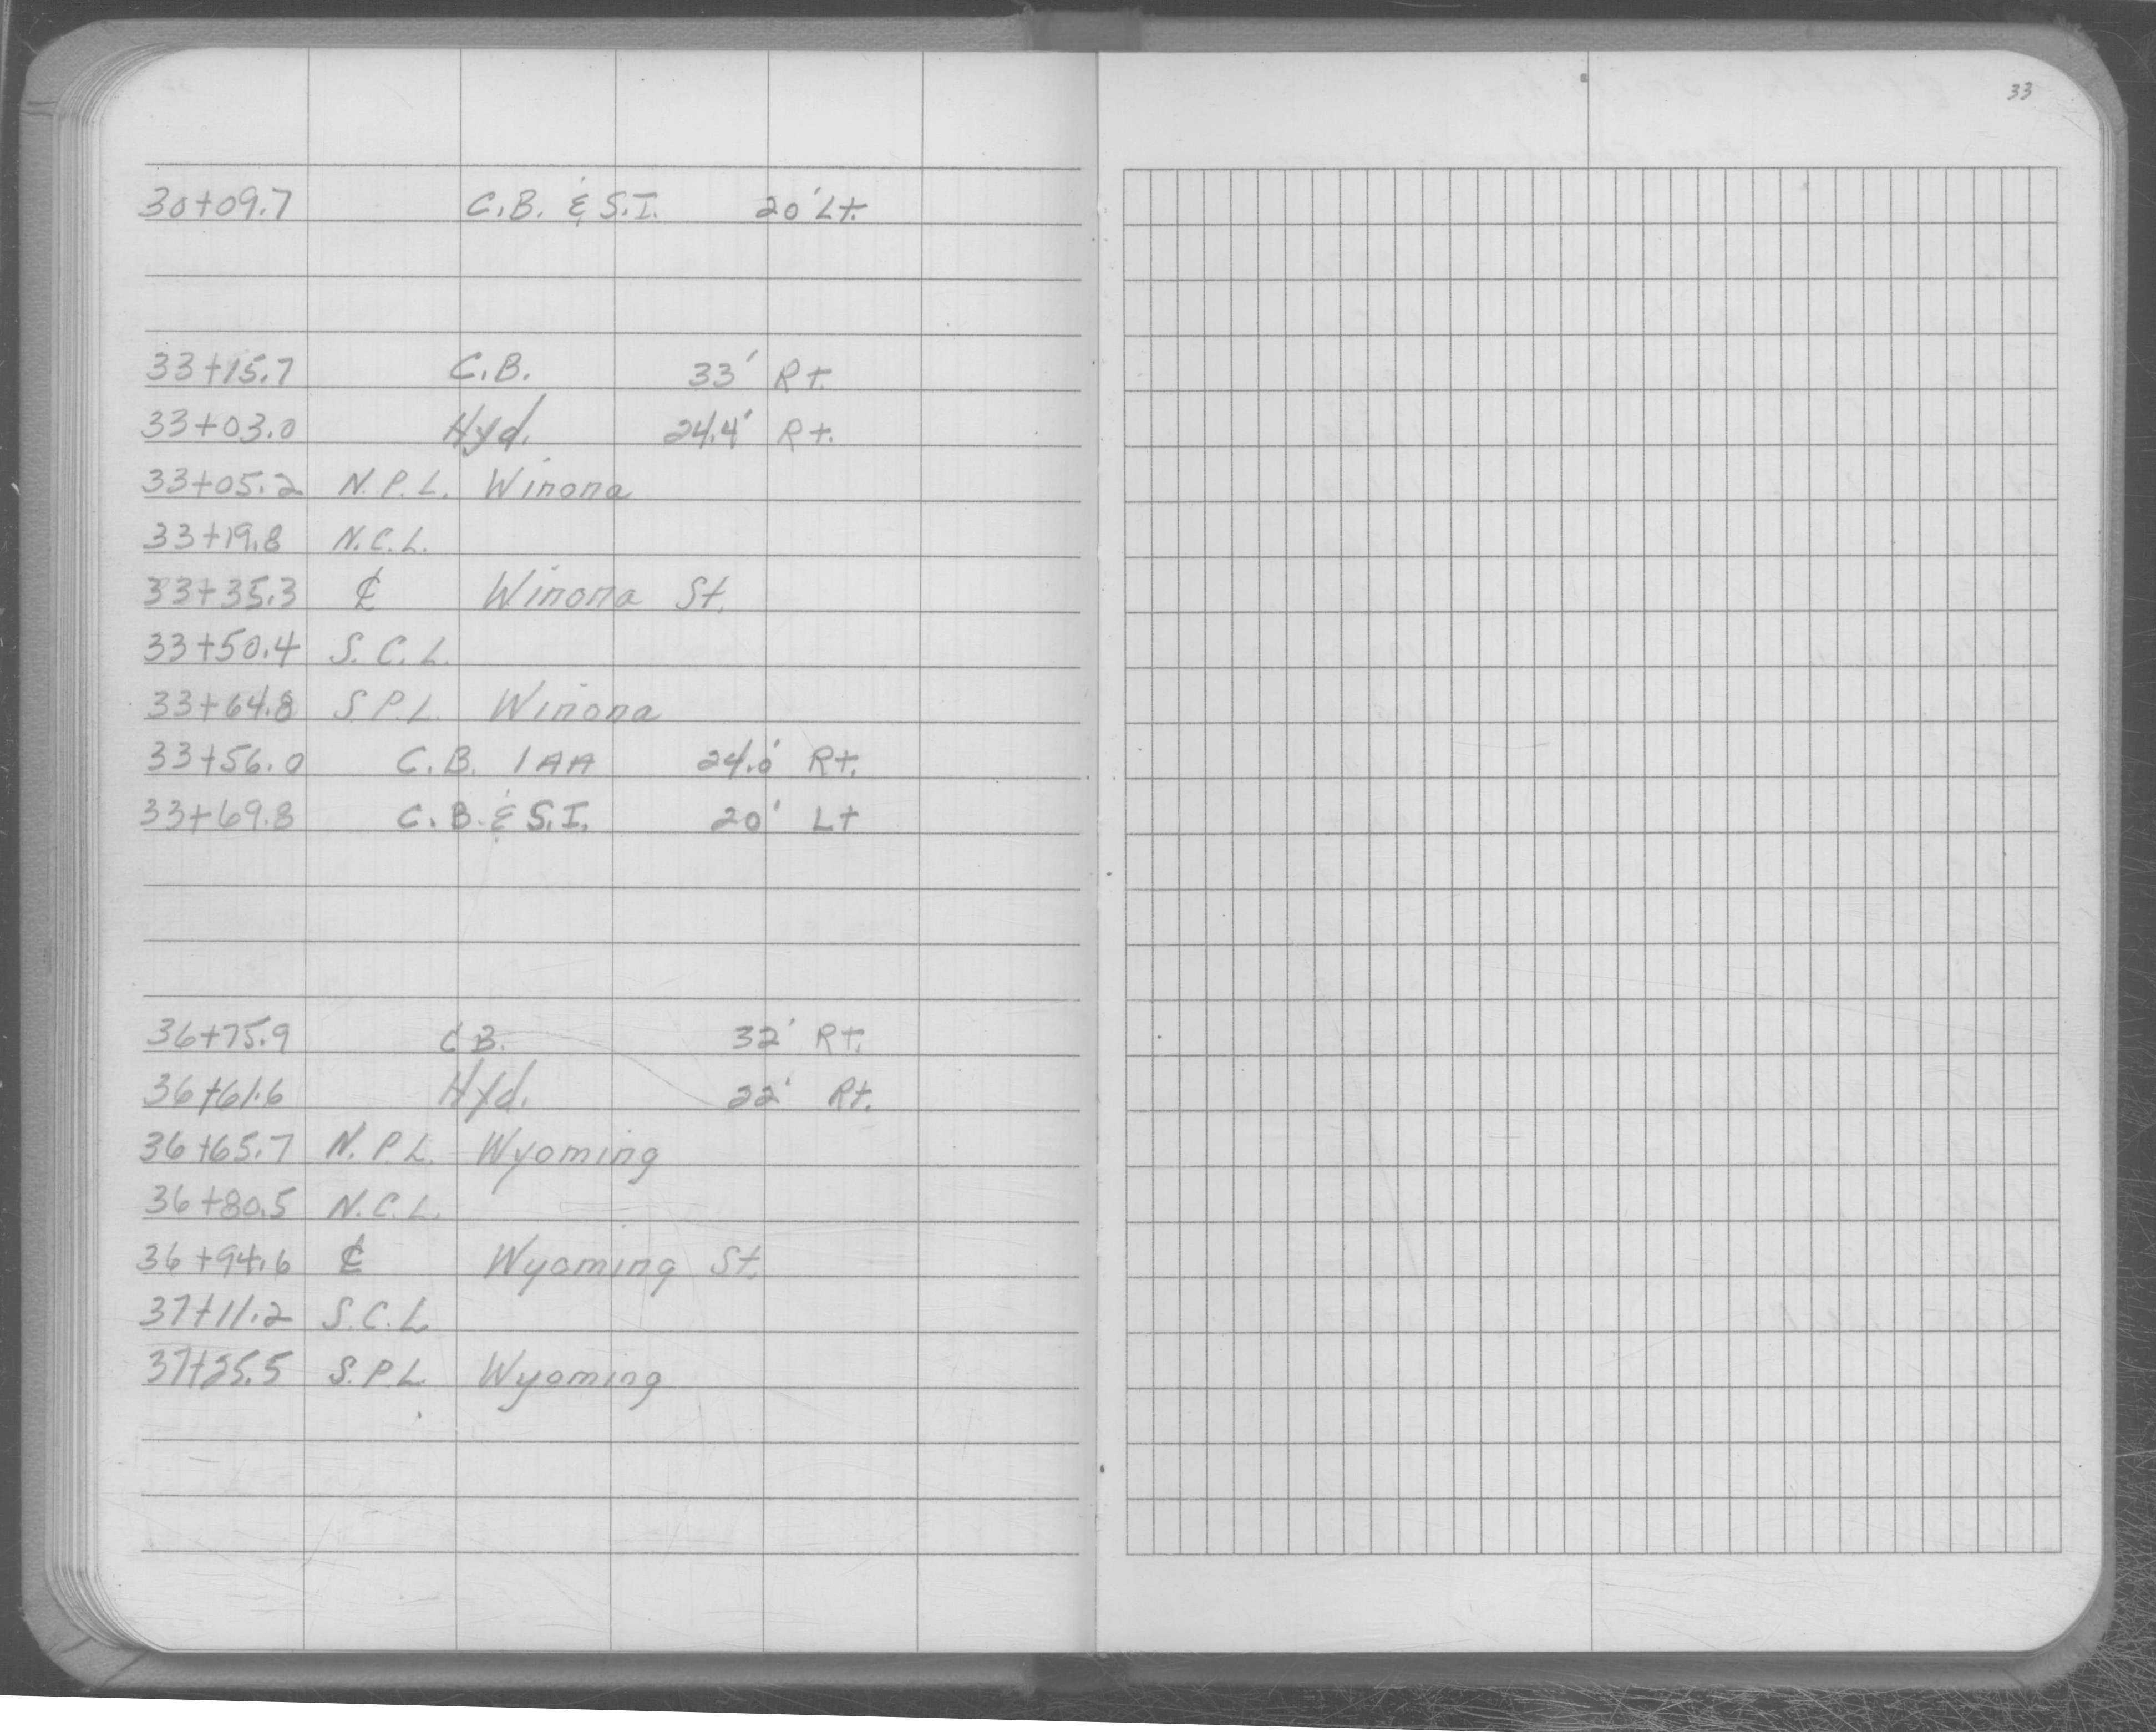 33
30+09.7 C.B. & S.I. 20' Lt.
33+15.7 C.B. 33' Rt.
33+03.0 Hyd. 24.4' Rt.
33+05.2 N.P.L. Winona
33+19.8 N.C.L.
33+35.3 ℄ Winona St.
33+50.4 S.C.L.
33+64.8 S.P.L. Winona
33+56.0 C.B. 1AA 24.0' Rt.
33+69.8 C.B. & S.I. 20' Lt
36+75.9 C.B. 32' Rt.
36+61.6 Hyd. 22' Rt.
36+65.7 N.P.L. Wyoming
36+80.5 N.C.L.
36+94.6 ℄ Wyoming St.
37+11.2 S.C.L.
37+25.5 S.P.L. Wyoming